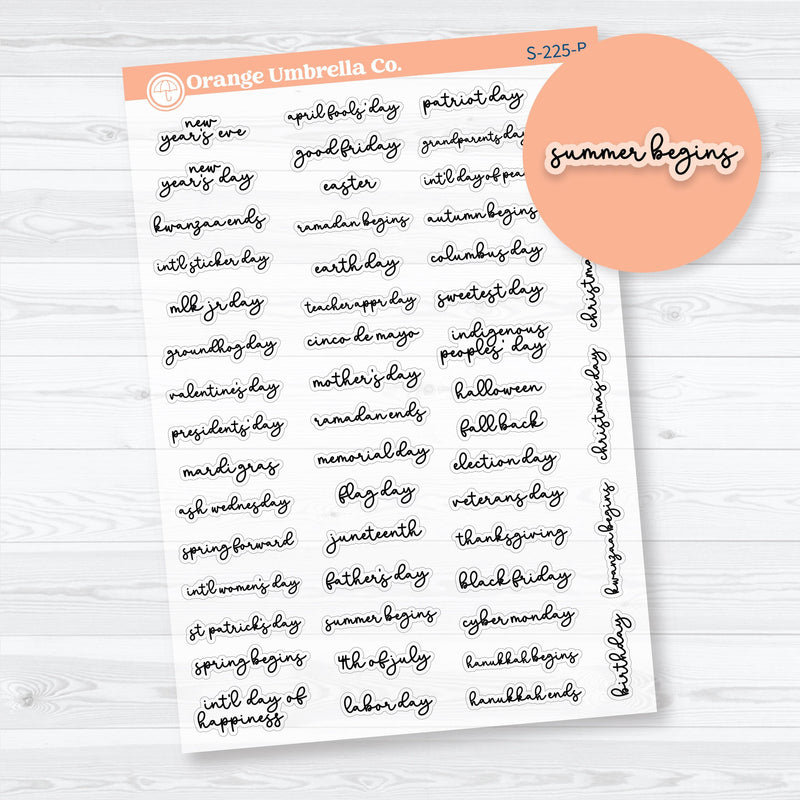 Orange Umbrella Co.
S-225-P
summer begins
new
year's eve
new
year's day
kwanzaa ends
int'l sticker day
mlk jr day
groundhog day
valentine's day
presidents' day
mardi gras
ash wednesday
spring forward
int'l women's day
st patrick's day
spring begins
int'l day of
happiness
april fools' day
good friday
easter
ramadan begins
earth day
teacher appr day
cinco de mayo
mother's day
ramadan ends
memorial day
flag day
juneteenth
father's day
summer begins
4th of july
labor day
patriot day
grandparents day
int'l day of
autumn begins
columbus day
sweetest day
indigenous
peoples' day
halloween
fall back
election day
veterans day
thanksgiving
black friday
cyber monday
hanukkah begins
hanukkah ends
christmas day
kwanzaa begins
birthday